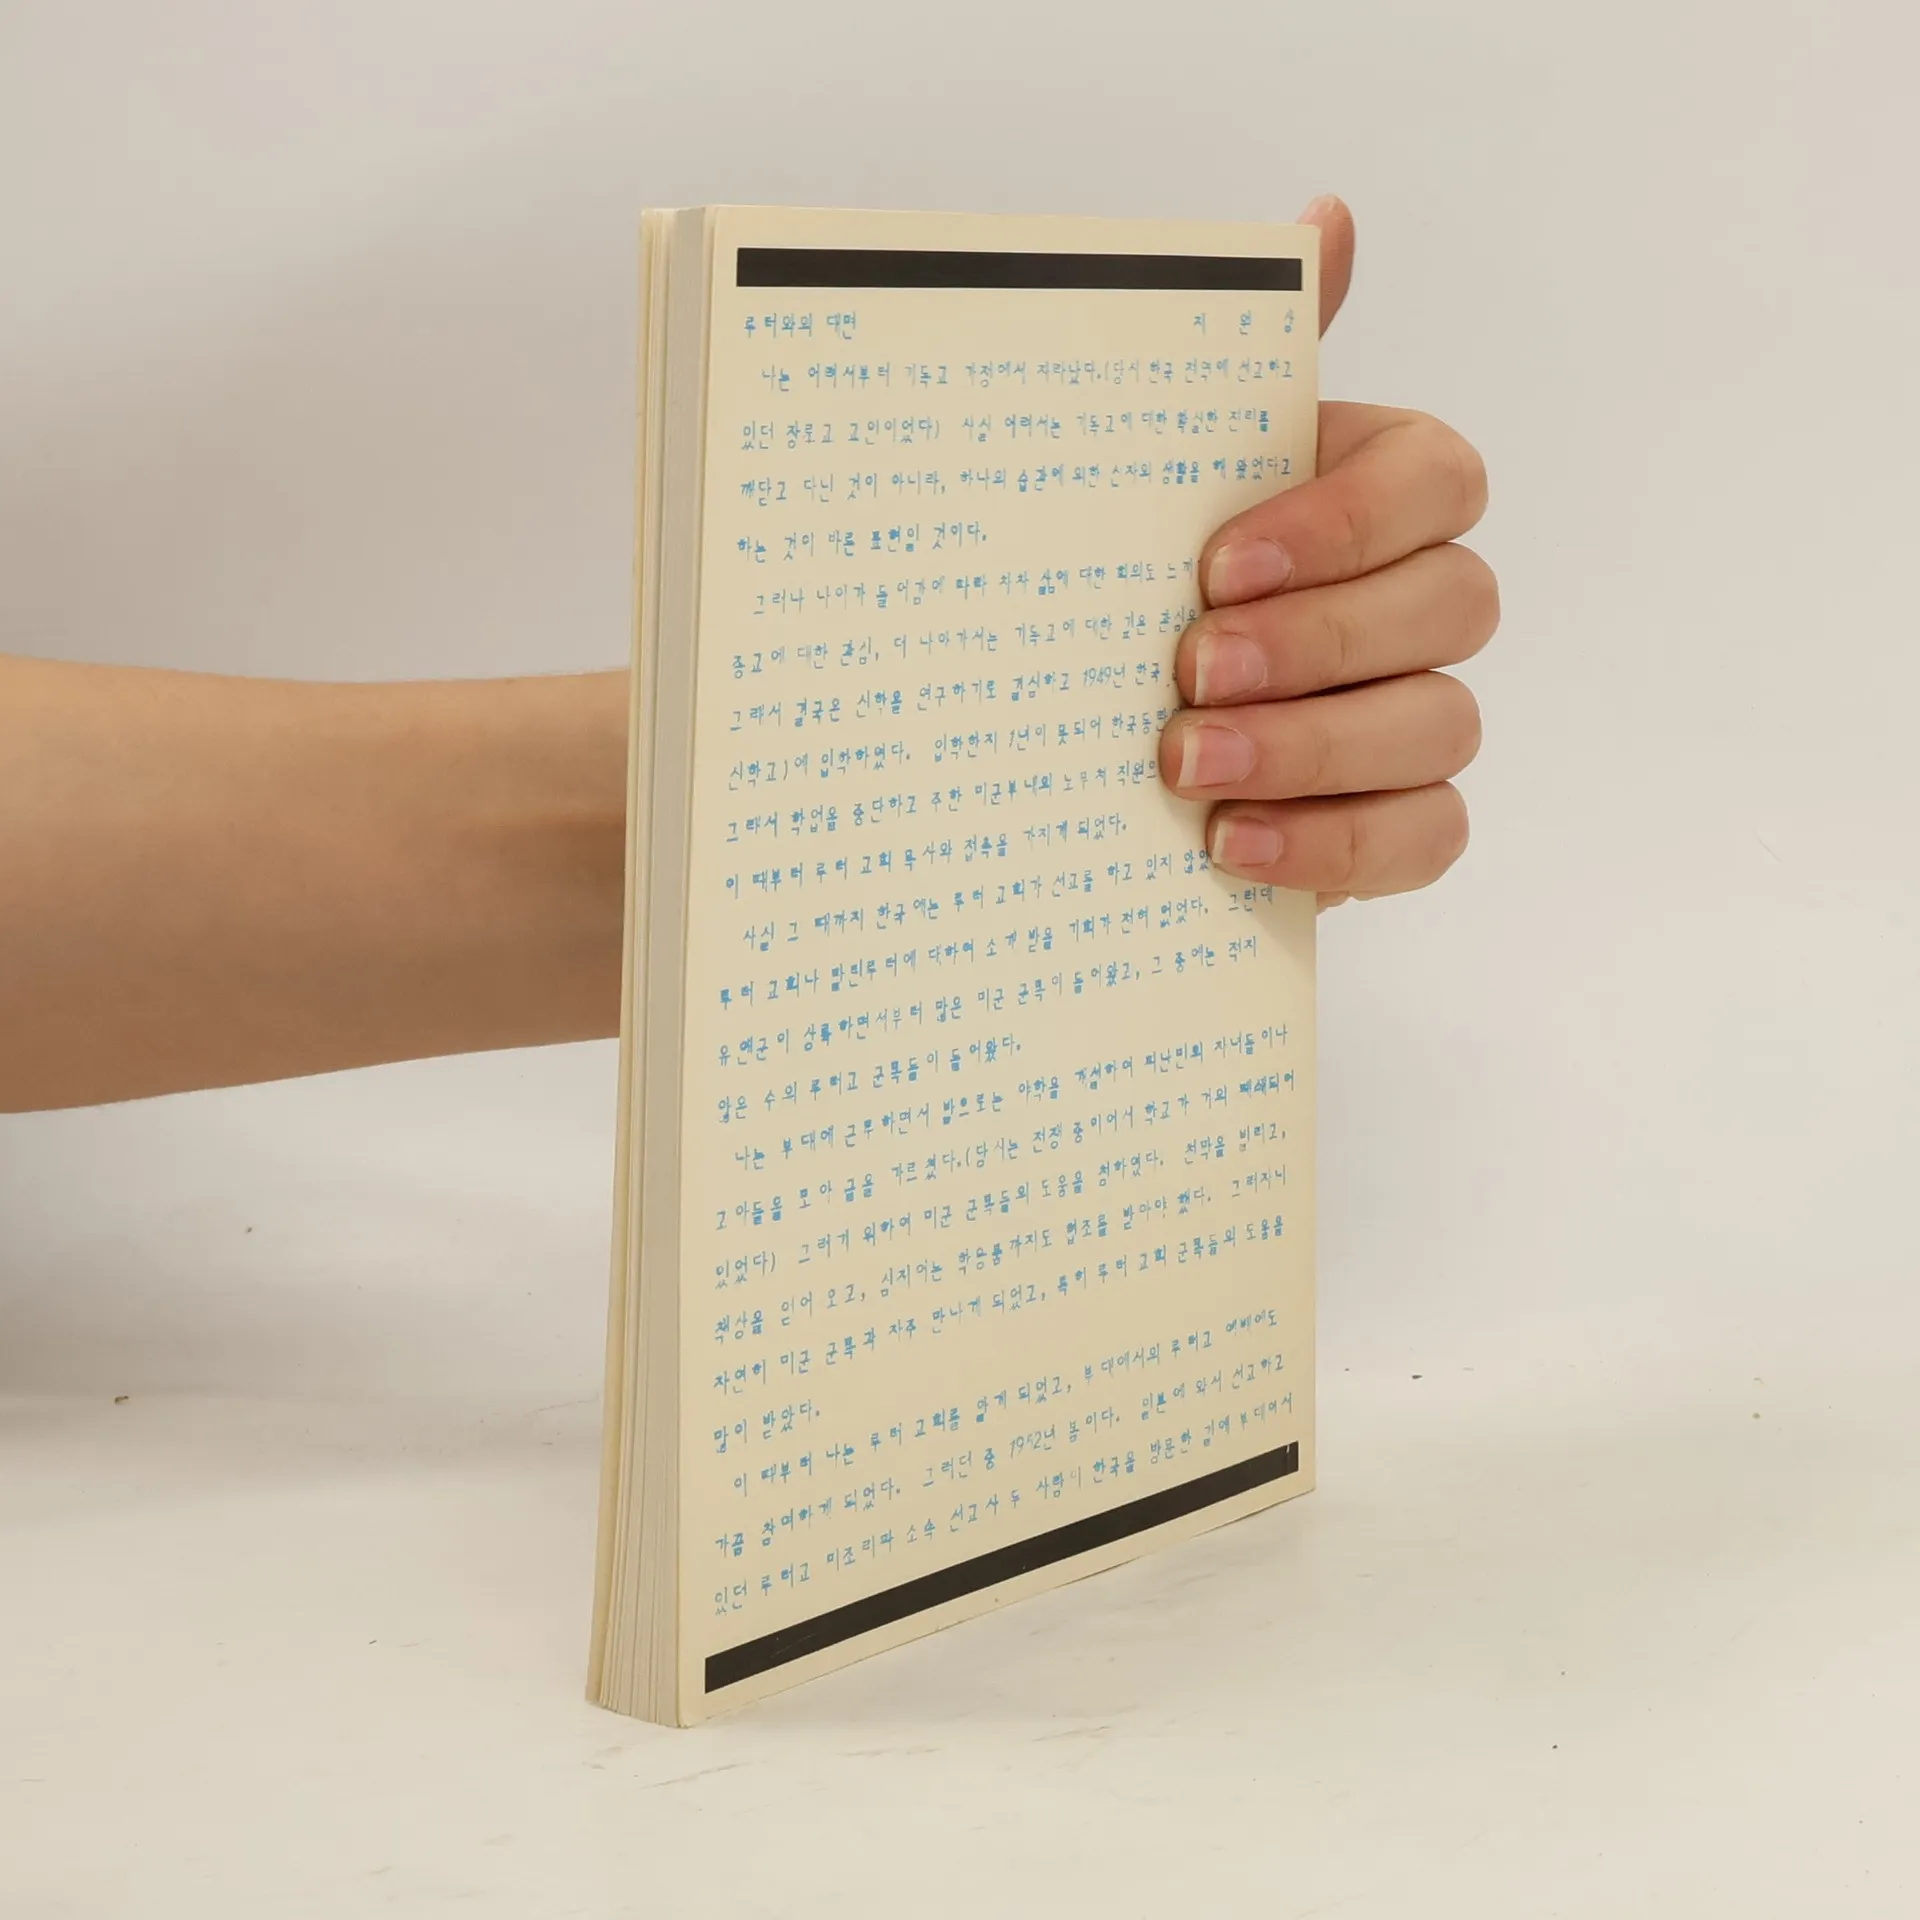 루터와의 대면 지 원 상
나는 어려서부터 기독교 가정에서 자라났다.(당시 한국 전역에 선교하고
있던 장로교 교인이었다) 사실 어려서는 기독교에 대한 확실한 진리를
깨닫고 다닌 것이 아니라, 하나의 습관에 의한 신자의 생활을 해 왔었다고
하는 것이 바른 표현일 것이다.
그러나 나이가 들어감에 따라 차차 삶에 대한 회의도 느끼
종교에 대한 관심, 더 나아가서는 기독교에 대한 깊은 관심을
그래서 결국은 신학을 연구하기로 결심하고 1949년 한국
신학교)에 입학하였다. 입학한지 1년이 못되어 한국동란
그래서 학업을 중단하고 주한 미군부내의 노무처 직원으
이 때부터 루터 교회 목사와 접촉을 가지게 되었다.
사실 그 때까지 한국에는 루터 교회가 선교를 하고 있지 않았
루터 교회나 말틴루터에 대하여 소개 받을 기회가 전혀 없었다. 그런데
유엔군이 상륙하면서부터 많은 미군 군목이 들어왔고, 그 중에는 적지
않은 수의 루터교 군목들이 들어왔다.
나는 부대에 근무하면서 밤으로는 야학을 개설하여 피난민의 자녀들이나
고아들을 모아 글을 가르쳤다.(당시는 전쟁 중이어서 학교가 거의 폐쇄되어
있었다) 그러기 위하여 미군 군목들의 도움을 청하였다. 천막을 빌리고,
책상을 얻어 오고, 심지어는 학용품까지도 협조를 받아야 했다. 그러자니
자연히 미군 군목과 자주 만나게 되었고, 특히 루터 교회 군목들의 도움을
많이 받았다.
이 때부터 나는 루터 교회를 알게 되었고, 부대에서의 루터교 예배에도
가끔 참여하게 되었다. 그러던 중 1952년 봄이다. 일본에 와서 선교하고
있던 루터교 미조리파 소속 선교사 두 사람이 한국을 방문한 길에 부대에서